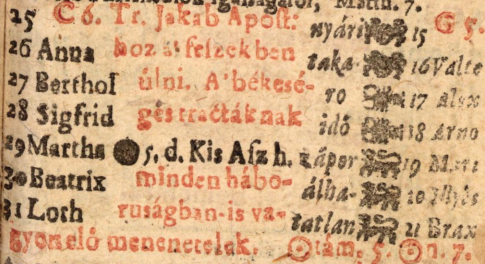 25 C 6. Tr. Jakab Apost: nyári 15 G 5.
26 Anna hoz is feſzekben taka- 16 Valte
27 Berthol ülni. A' békeſé- ro 17 Alex
28 Sigfrid ges tractáknak idő 18 Arno
29 Martha 5. d. Kis Aſz h. zápor 19
30 Beatrix minden hábo- álha- 20 Illyés
31 Loth ruságban-is va- tatlan 21 Brax
gyon elő menenetelek. tám. 5. n. 7.